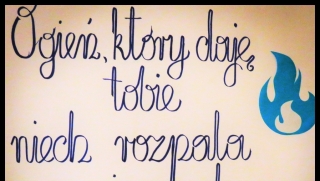 Ogień, który daję
tobie
niech rozpala